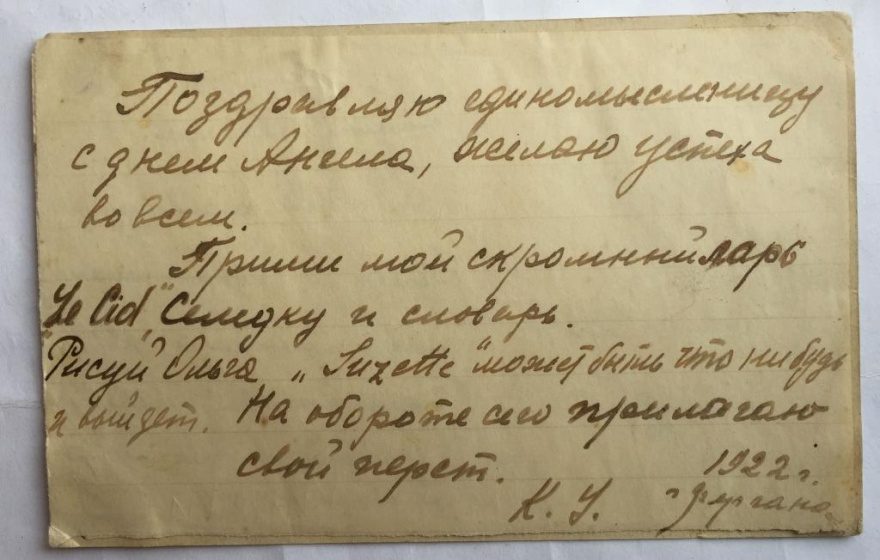 Поздравляю единомысленницу
с днем Ангела, желаю успеха
во всем.
Прими мой скромный ларь
"Le Cid", Селедку и словарь.
"Рисуй Ольга „Suzette" может быть что нибудь
и выйдет. На обороте сего прилагаю
свой перст.
1922 г.
К. У. г Фергана